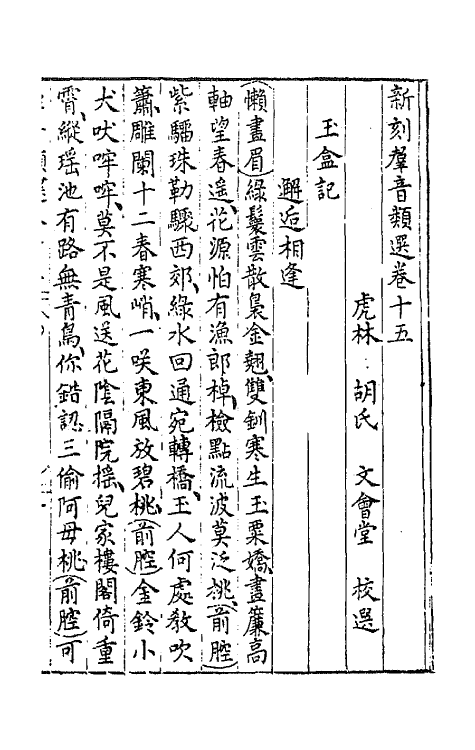 新刻羣音類選卷十五
虎林 胡氏 文會堂 校選
玉盒記
邂逅相逢
（懶畫眉）綠鬟雲散裊金翹、雙釧寒生玉粟嬌、畫簾高
軸望春遥、花源怕有漁郎棹、檢點流波莫泛桃、（前腔）
紫騮珠勒驟西郊、綠水回通宛轉橋、玉人何處教吹
簫、雕闌十二春寒峭、一咲東風放碧桃、（前腔）金鈴小
犬吠哰哰、莫不是風送花陰隔院摇、兒家樓閣倚重
霄、縱瑶池有路無青鳥、你錯認三偷阿母桃、（前腔）可